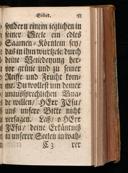 Gibet.
sondern einem jeglichen in
seiner Seele ein edles
Saamen-Körnlein sey/
das in ihm wurtzele durch
deine Benedeyung her-
vor grüne und zu seiner
Reiffe und Frucht kom-
me. Du wollest um deiner
unaussprechlichen Gna-
de wollen/ HErr JEsu/
uns unsere Bitte nicht
versagen. Laß/ o HErr
JEsu/ deine Erkäntnus
in unserer Seelen so wach-
C 3 rer